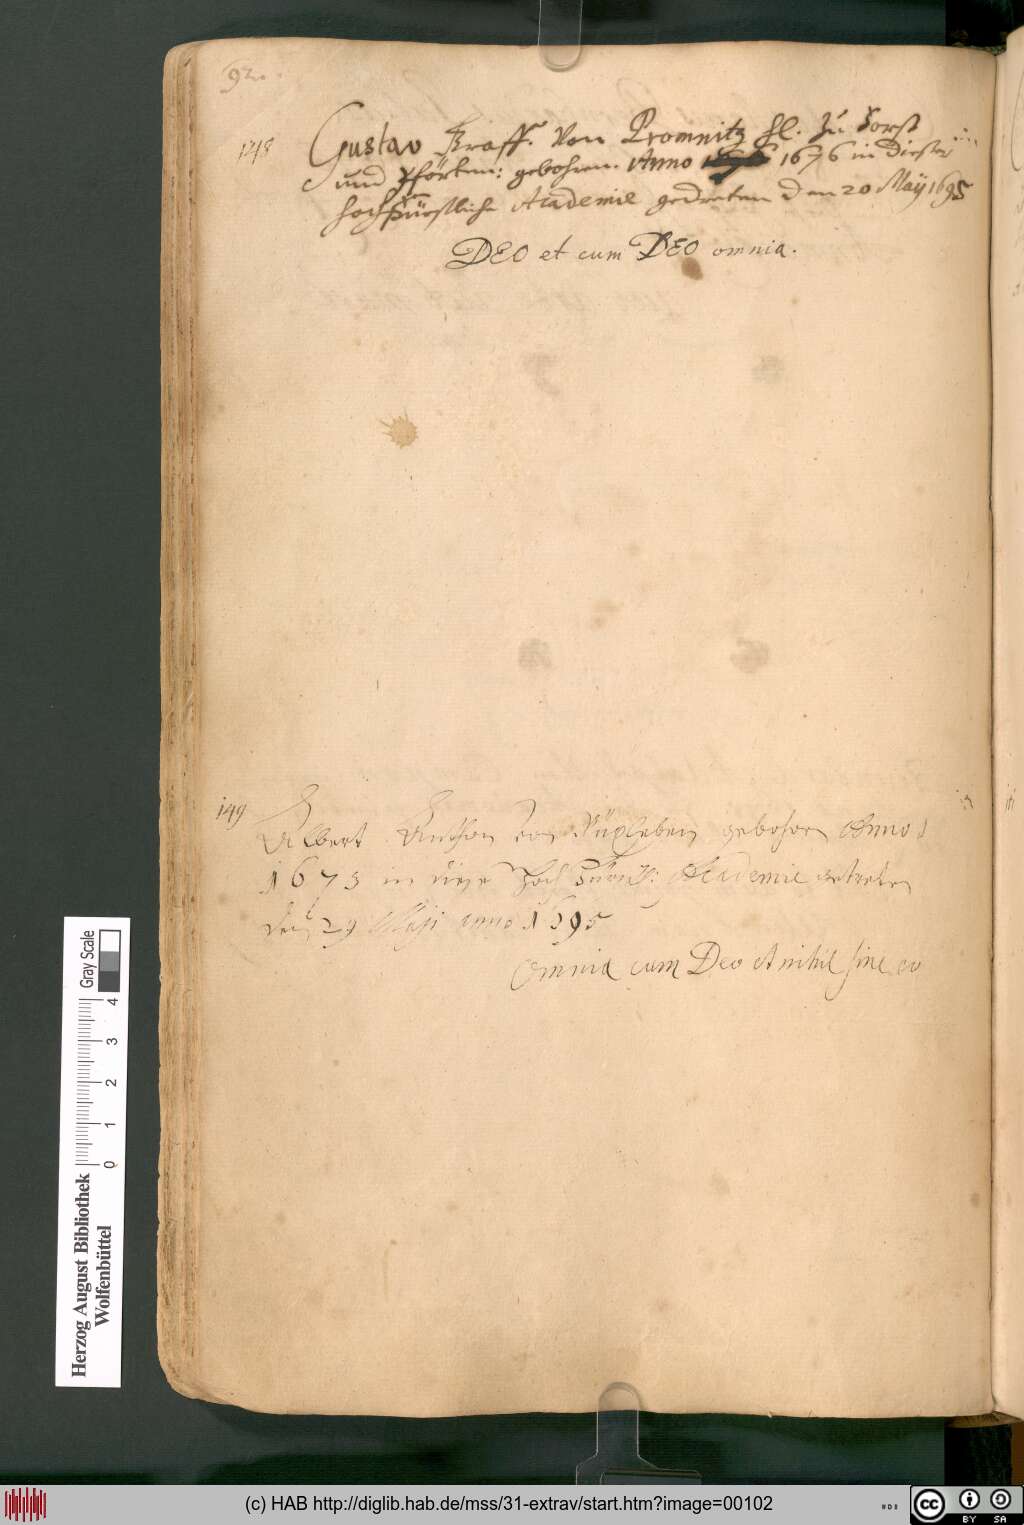 92.
148
Gustav Graff. Von Promnitz H. zu Forst
und Pförten: gebohren. Anno 1676 in Dieser
hochfürstliche Academie gedretten den 20 Maÿ 1695
DEO et cum DEO omnia.
149
Albert Anthon von Rüxleben gebohren Anno
1673 in diese Hoch Fürstl: Academie getreten
den 29 Maji anno 1695
Omnia cum Deo et nihil sine eo
Herzog August Bibliothek
Wolfenbüttel
0 1 2 3 4
Gray Scale
(c) HAB http://diglib.hab.de/mss/31-extrav/start.htm?image=00102
cc BY SA